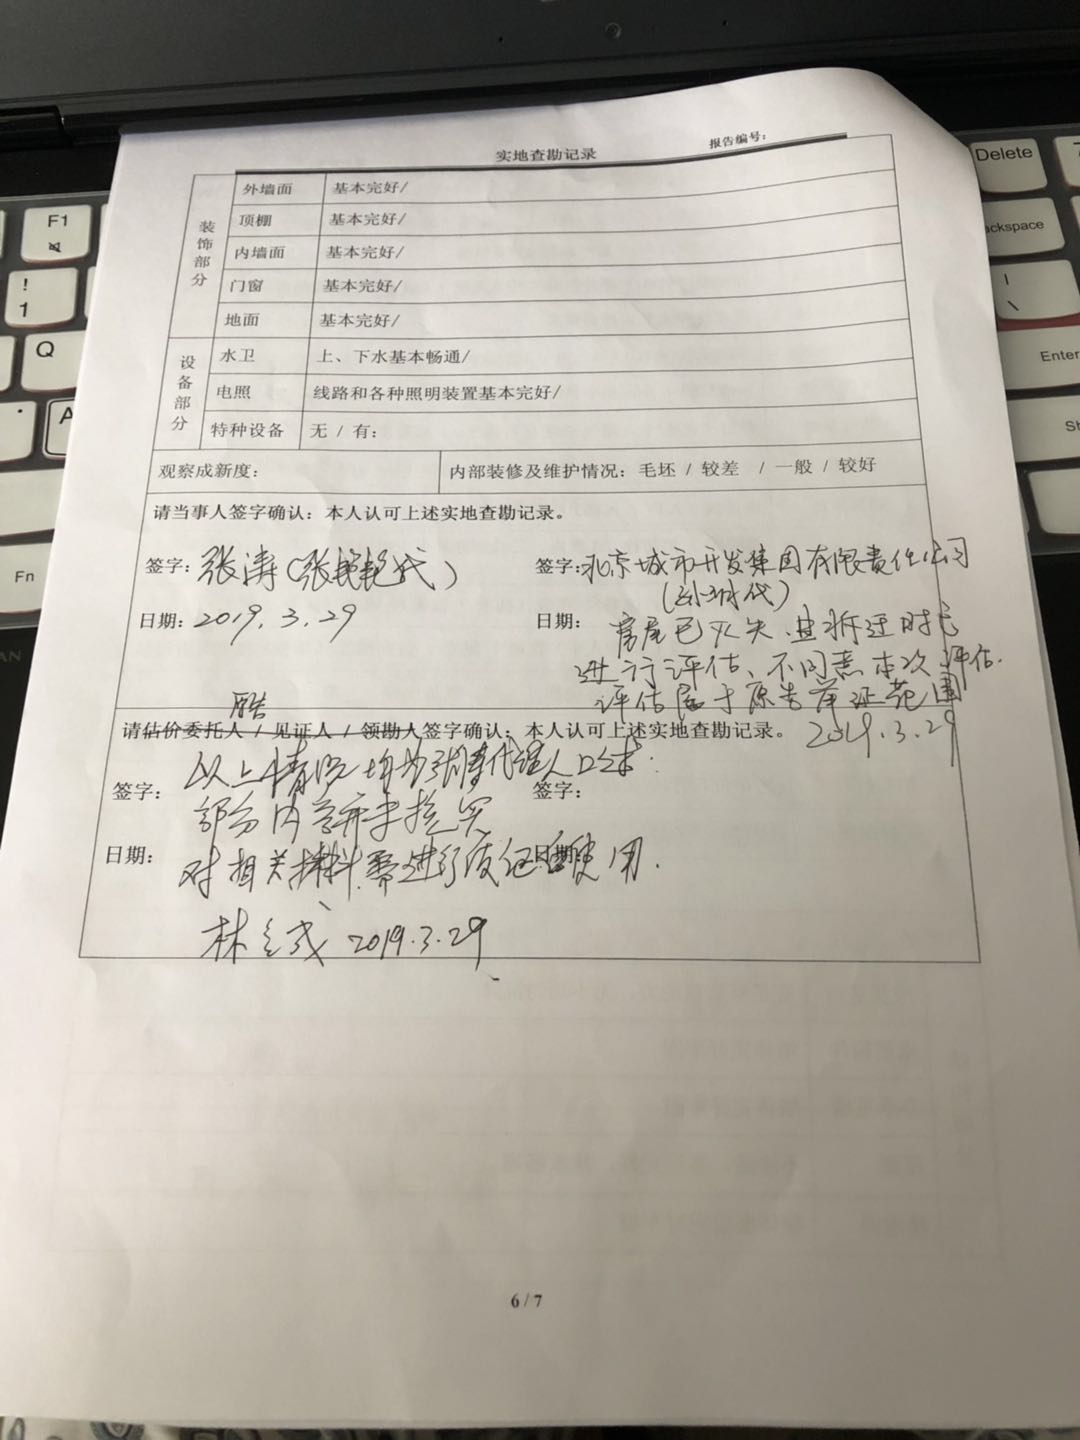 报告编号：
实地查勘记录
装饰部分
外墙面 基本完好/
顶棚 基本完好/
内墙面 基本完好/
门窗 基本完好/
地面 基本完好/
设备部分
水卫 上、下水基本畅通/
电照 线路和各种照明装置基本完好/
特种设备 无 / 有：
观察成新度： 内部装修及维护情况：毛坯 / 较差 / 一般 / 较好
请当事人签字确认：本人认可上述实地查勘记录。
签字：张涛（张艳艳代）
日期：2019.3.29
签字：北京城市开发集团有限责任公司
日期：
房屋已灭失，且拆迁时已
进行评估、不同意本次评估.
评估属于原告举证范围
2019.3.29
请估价委托人 / 见证人 / 领勘人签字确认：本人认可上述实地查勘记录。
以上情况均为张涛代理人口述.
签字： 签字：
部分内容并未核实
日期： 日期：
对相关材料需进行质证后使用.
林 2019.3.29
6 / 7
F1
!
1
Q
A
Fn
Delete
ackspace
|
\
Enter
Sh
AN